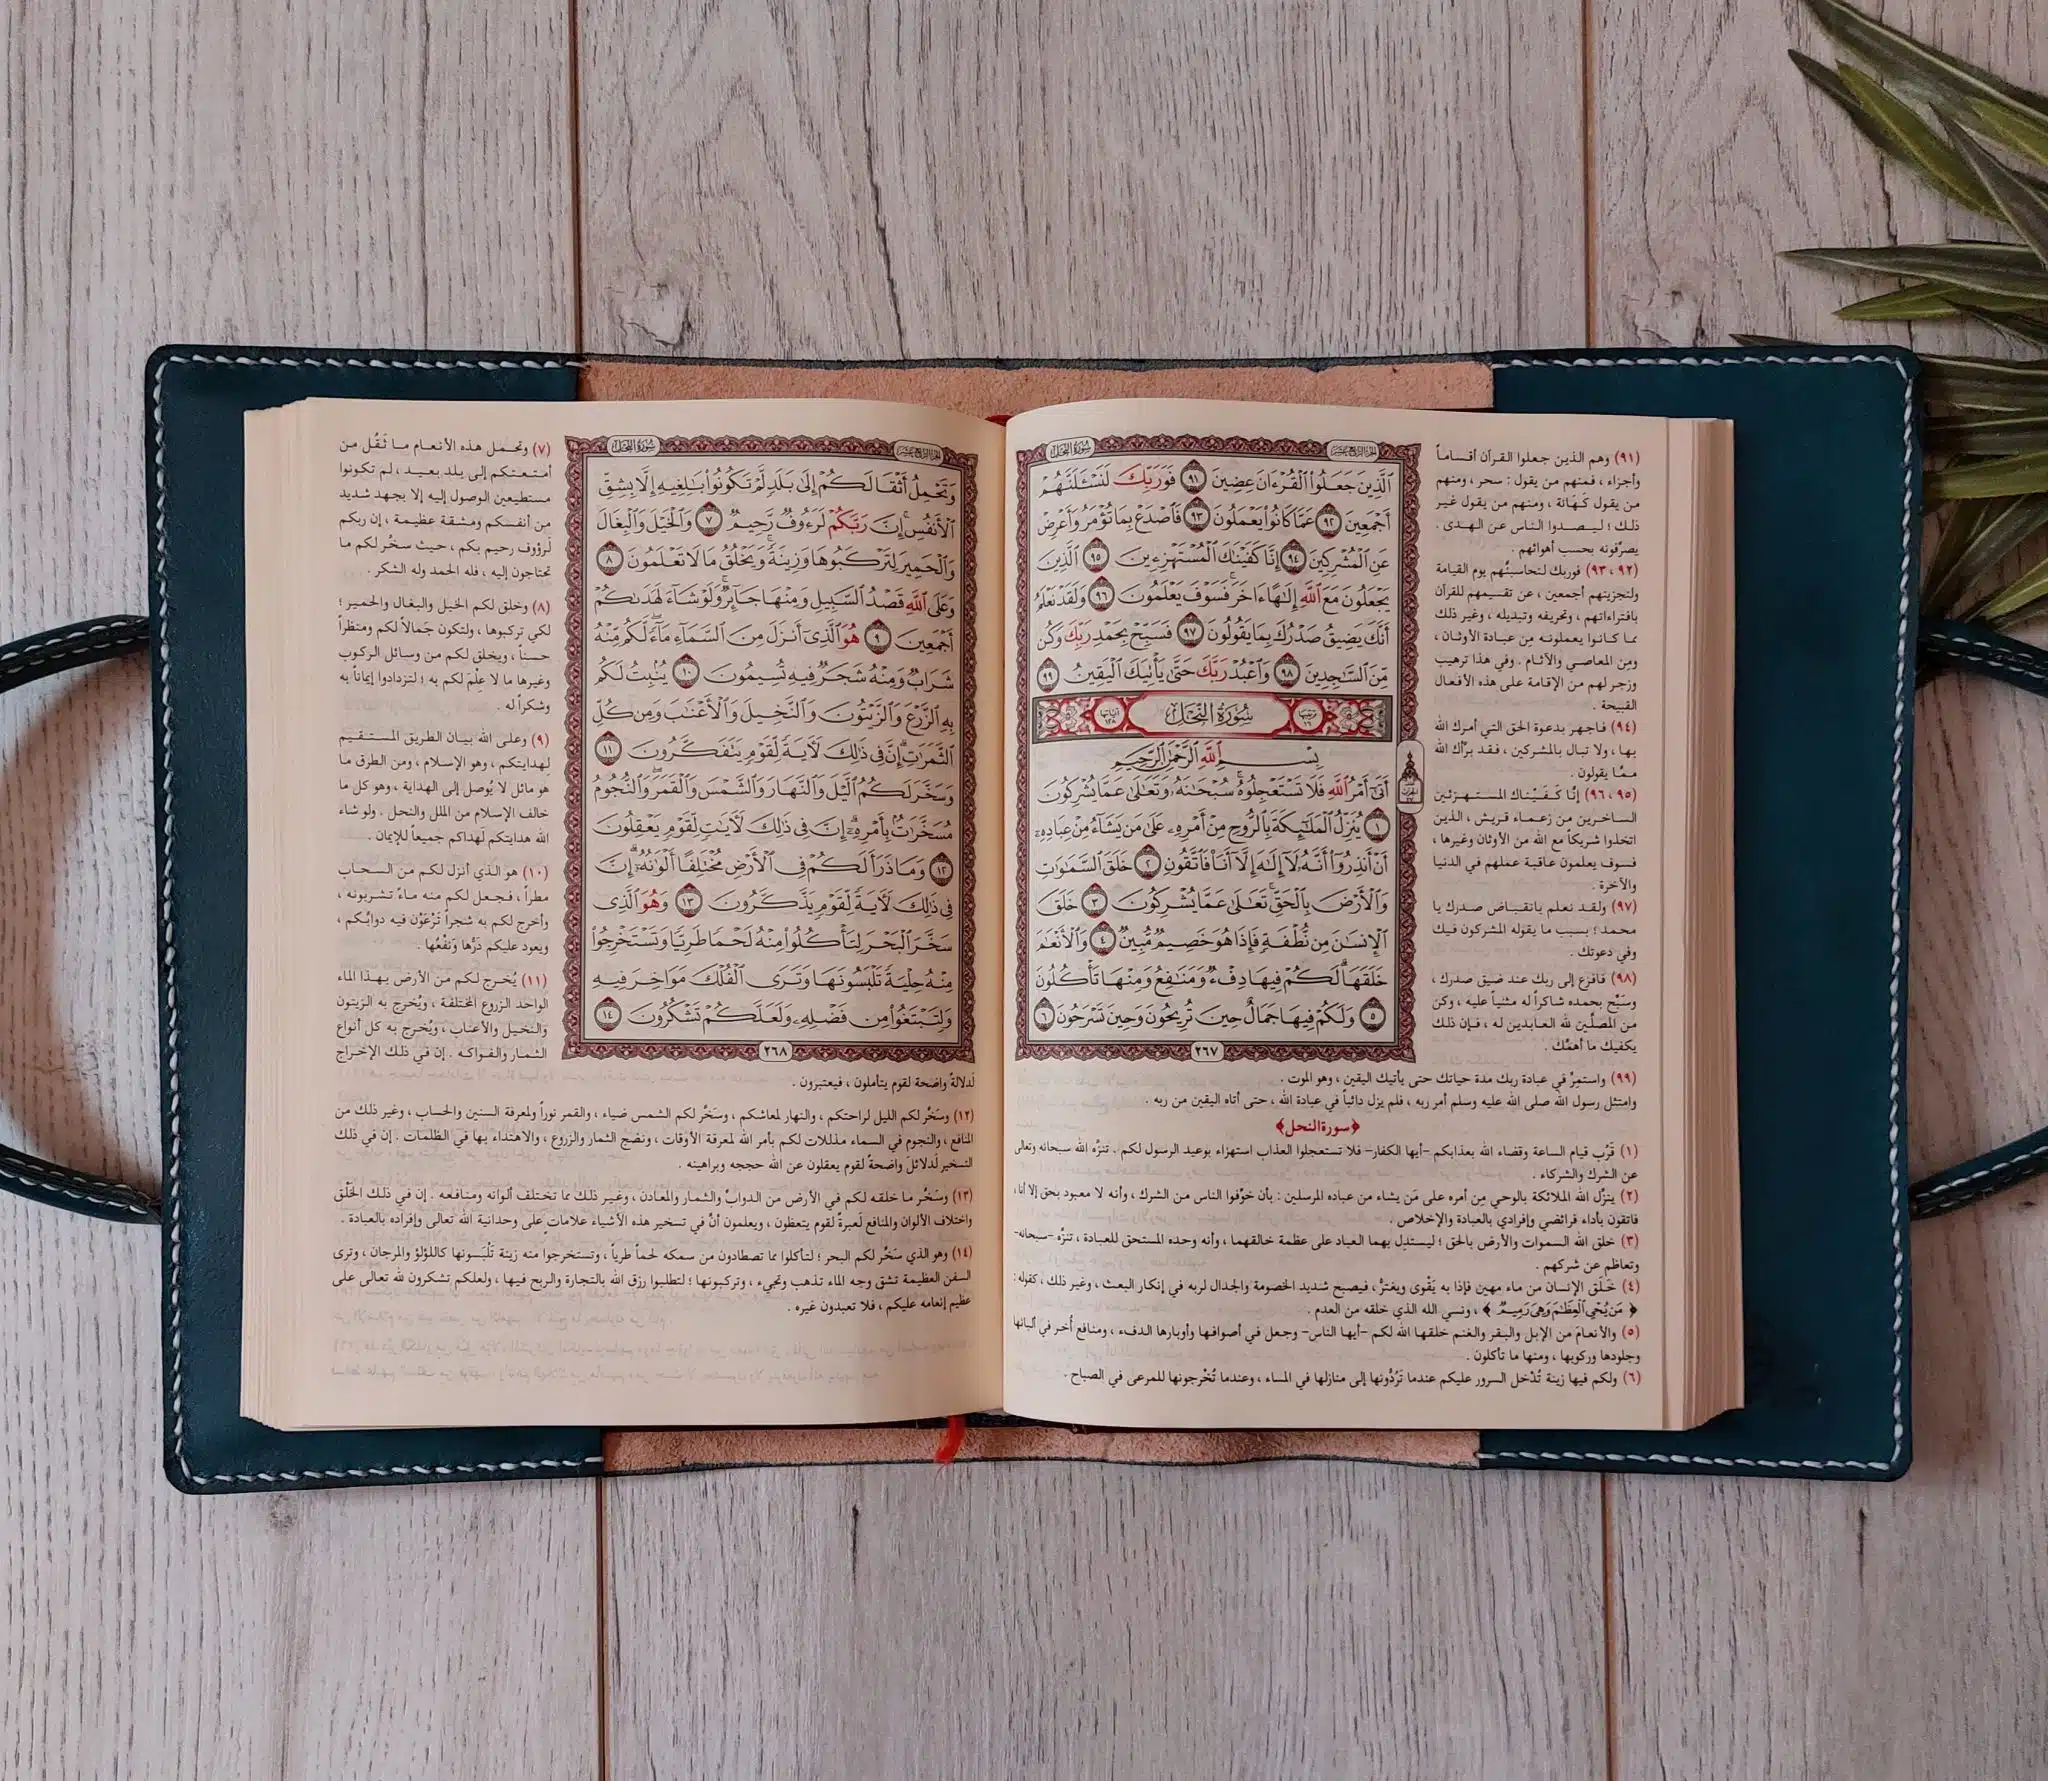 الجزء الرابع عشر سورة النحل
ٱلَّذِينَ جَعَلُوا۟ ٱلْقُرْءَانَ عِضِينَ ٩١ فَوَرَبِّكَ لَنَسْـَٔلَنَّهُمْ
أَجْمَعِينَ ٩٢ عَمَّا كَانُوا۟ يَعْمَلُونَ ٩٣ فَٱصْدَعْ بِمَا تُؤْمَرُ وَأَعْرِضْ
عَنِ ٱلْمُشْرِكِينَ ٩٤ إِنَّا كَفَيْنَـٰكَ ٱلْمُسْتَهْزِءِينَ ٩٥ ٱلَّذِينَ
يَجْعَلُونَ مَعَ ٱللَّهِ إِلَـٰهًا ءَاخَرَ ۚ فَسَوْفَ يَعْلَمُونَ ٩٦ وَلَقَدْ نَعْلَمُ
أَنَّكَ يَضِيقُ صَدْرُكَ بِمَا يَقُولُونَ ٩٧ فَسَبِّحْ بِحَمْدِ رَبِّكَ وَكُن
مِّنَ ٱلسَّـٰجِدِينَ ٩٨ وَٱعْبُدْ رَبَّكَ حَتَّىٰ يَأْتِيَكَ ٱلْيَقِينُ ٩٩
ترتيبها ١٦ سُورَةُ النَّحْلِ آياتها ١٢٨
بِسْمِ ٱللَّهِ ٱلرَّحْمَـٰنِ ٱلرَّحِيمِ
أَتَىٰٓ أَمْرُ ٱللَّهِ فَلَا تَسْتَعْجِلُوهُ ۚ سُبْحَـٰنَهُۥ وَتَعَـٰلَىٰ عَمَّا يُشْرِكُونَ
١ يُنَزِّلُ ٱلْمَلَـٰٓئِكَةَ بِٱلرُّوحِ مِنْ أَمْرِهِۦ عَلَىٰ مَن يَشَآءُ مِنْ عِبَادِهِۦٓ
أَنْ أَنذِرُوٓا۟ أَنَّهُۥ لَآ إِلَـٰهَ إِلَّآ أَنَا۠ فَٱتَّقُونِ ٢ خَلَقَ ٱلسَّمَـٰوَٰتِ
وَٱلْأَرْضَ بِٱلْحَقِّ ۚ تَعَـٰلَىٰ عَمَّا يُشْرِكُونَ ٣ خَلَقَ
ٱلْإِنسَـٰنَ مِن نُّطْفَةٍ فَإِذَا هُوَ خَصِيمٌ مُّبِينٌ ٤ وَٱلْأَنْعَـٰمَ
خَلَقَهَا ۗ لَكُمْ فِيهَا دِفْءٌ وَمَنَـٰفِعُ وَمِنْهَا تَأْكُلُونَ
٥ وَلَكُمْ فِيهَا جَمَالٌ حِينَ تُرِيحُونَ وَحِينَ تَسْرَحُونَ ٦
٢٦٧
(٩١) وهم الذين جعلوا القرآن أقساماً
وأجزاء ، فمنهم من يقول : سحر ، ومنهم
من يقول كَهَانَة ، ومنهم من يقول غير
ذلك ؛ ليصدوا الناس عن الهدى .
يصرِّفونه بحسب أهوائهم .
(٩٢ ، ٩٣) فوربك لنحاسبنُّهم يوم القيامة
ولنجزينهم أجمعين ، عن تقسيمهم للقرآن
بافتراءاتهم ، وتحريفه وتبديله ، وغير ذلك
مما كانوا يعملونه مِن عبادة الأوثان ،
ومِن المعاصي والآثام . وفي هذا ترهيب
وزجر لهم من الإقامة على هذه الأفعال
القبيحة .
(٩٤) فاجهر بدعوة الحق التي أمرك الله
بها ، ولا تبال بالمشركين ، فقد برَّأك الله
ممَّا يقولون .
(٩٥ ، ٩٦) إنَّا كَفَيْناك المستهزئين
الساخرين من زعماء قريش ، الذين
اتخذوا شريكاً مع الله من الأوثان وغيرها ،
فسوف يعلمون عاقبة عملهم في الدنيا
والآخرة .
(٩٧) ولقد نعلم بانقباض صدرك يا
محمد ؛ بسبب ما يقوله المشركون فيك
وفي دعوتك .
(٩٨) فافزع إلى ربك عند ضيق صدرك ،
وسَبِّح بحمده شاكراً له مثنياً عليه ، وكن
من المصلِّين لله العابدين له ، فإن ذلك
يكفيك ما أهمَّك .
(٩٩) واستمِرَّ في عبادة ربك مدة حياتك حتى يأتيك اليقين ، وهو الموت .
وامتثل رسول الله صلى الله عليه وسلم أمر ربه ، فلم يزل دائباً في عبادة الله ، حتى أتاه اليقين من ربه .
﴿سورة النحل﴾
(١) قَرُب قيام الساعة وقضاء الله بعذابكم –أيها الكفار– فلا تستعجلوا العذاب استهزاء بوعيد الرسول لكم . تنزَّه الله سبحانه وتعالى
عن الشرك والشركاء .
(٢) ينزِّل الله الملائكة بالوحي مِن أمره على مَن يشاء من عباده المرسلين : بأن خوِّفوا الناس من الشرك ، وأنه لا معبود بحق إلا أنا ،
فاتقون بأداء فرائضي وإفرادي بالعبادة والإخلاص .
(٣) خلق الله السموات والأرض بالحق ؛ ليستدِل بهما العباد على عظمة خالقهما ، وأنه وحده المستحق للعبادة ، تنزَّه –سبحانه–
وتعاظم عن شركهم .
(٤) خَلَق الإنسان من ماء مهين فإذا به يَقْوى ويغترُّ ، فيصبح شديد الخصومة والجدال لربه في إنكار البعث ، وغير ذلك ، كقوله :
﴿ مَن يُحْيِ ٱلْعِظَـٰمَ وَهِىَ رَمِيمٌ ﴾ ، ونسي الله الذي خلقه من العدم .
(٥) والأنعامَ من الإبل والبقر والغنم خلقها الله لكم –أيها الناس– وجعل في أصوافها وأوبارها الدفء ، ومنافع أُخر في ألبانها
وجلودها وركوبها ، ومنها ما تأكلون .
(٦) ولكم فيها زينة تُدْخل السرور عليكم عندما تَرُدُّونها إلى منازلها في المساء ، وعندما تُخْرجونها للمرعى في الصباح .
الجزء الرابع عشر سورة النحل
وَتَحْمِلُ أَثْقَالَكُمْ إِلَىٰ بَلَدٍ لَّمْ تَكُونُوا۟ بَـٰلِغِيهِ إِلَّا بِشِقِّ
ٱلْأَنفُسِ ۚ إِنَّ رَبَّكُمْ لَرَءُوفٌ رَّحِيمٌ ٧ وَٱلْخَيْلَ وَٱلْبِغَالَ
وَٱلْحَمِيرَ لِتَرْكَبُوهَا وَزِينَةً ۚ وَيَخْلُقُ مَا لَا تَعْلَمُونَ ٨
وَعَلَى ٱللَّهِ قَصْدُ ٱلسَّبِيلِ وَمِنْهَا جَآئِرٌ ۚ وَلَوْ شَآءَ لَهَدَىٰكُمْ
أَجْمَعِينَ ٩ هُوَ ٱلَّذِىٓ أَنزَلَ مِنَ ٱلسَّمَآءِ مَآءً ۖ لَّكُم مِّنْهُ
شَرَابٌ وَمِنْهُ شَجَرٌ فِيهِ تُسِيمُونَ ١٠ يُنۢبِتُ لَكُم
بِهِ ٱلزَّرْعَ وَٱلزَّيْتُونَ وَٱلنَّخِيلَ وَٱلْأَعْنَـٰبَ وَمِن كُلِّ
ٱلثَّمَرَٰتِ ۗ إِنَّ فِى ذَٰلِكَ لَـَٔايَةً لِّقَوْمٍ يَتَفَكَّرُونَ ١١
وَسَخَّرَ لَكُمُ ٱلَّيْلَ وَٱلنَّهَارَ وَٱلشَّمْسَ وَٱلْقَمَرَ ۖ وَٱلنُّجُومُ
مُسَخَّرَٰتٌۢ بِأَمْرِهِۦٓ ۗ إِنَّ فِى ذَٰلِكَ لَـَٔايَـٰتٍ لِّقَوْمٍ يَعْقِلُونَ
١٢ وَمَا ذَرَأَ لَكُمْ فِى ٱلْأَرْضِ مُخْتَلِفًا أَلْوَٰنُهُۥٓ ۗ إِنَّ
فِى ذَٰلِكَ لَـَٔايَةً لِّقَوْمٍ يَذَّكَّرُونَ ١٣ وَهُوَ ٱلَّذِى
سَخَّرَ ٱلْبَحْرَ لِتَأْكُلُوا۟ مِنْهُ لَحْمًا طَرِيًّا وَتَسْتَخْرِجُوا۟
مِنْهُ حِلْيَةً تَلْبَسُونَهَا وَتَرَى ٱلْفُلْكَ مَوَاخِرَ فِيهِ
وَلِتَبْتَغُوا۟ مِن فَضْلِهِۦ وَلَعَلَّكُمْ تَشْكُرُونَ ١٤
٢٦٨
(٧) وتحمل هذه الأنعام ما ثَقُل من
أمتعتكم إلى بلد بعيد ، لم تكونوا
مستطيعين الوصول إليه إلا بجهد شديد
من أنفسكم ومشقة عظيمة ، إن ربكم
لَرؤوف رحيم بكم ، حيث سخَّر لكم ما
تحتاجون إليه ، فله الحمد وله الشكر .
(٨) وخلق لكم الخيل والبغال والحمير ؛
لكي تركبوها ، ولتكون جَمالاً لكم ومنظراً
حسناً ، ويخلق لكم من وسائل الركوب
وغيرها ما لا عِلْمَ لكم به ؛ لتزدادوا إيماناً به
وشكراً له .
(٩) وعلى الله بيان الطريق المستقيم
لِهدايتكم ، وهو الإسلام ، ومن الطرق ما
هو مائل لا يُوصل إلى الهداية ، وهو كل ما
خالف الإسلام من الملل والنحل . ولو شاء
الله هدايتكم لَهداكم جميعاً للإيمان .
(١٠) هو الذي أنزل لكم من السحاب
مطراً ، فجعل لكم منه ماءً تشربونه ،
وأخرج لكم به شجراً تَرْعَوْن فيه دوابَّكم ،
ويعود عليكم دَرُّها ونفْعُها .
(١١) يُخرج لكم من الأرض بهذا الماء
الواحد الزروع المختلفة ، ويُخرج به الزيتون
والنخيل والأعناب ، ويُخرج به كل أنواع
الثمار والفواكه . إن في ذلك الإخراج
لَدلالةً واضحة لقوم يتأملون ، فيعتبرون .
(١٢) وسَخَّر لكم الليل لراحتكم ، والنهار لمعاشكم ، وسَخَّر لكم الشمس ضياء ، والقمر نوراً ولمعرفة السنين والحساب ، وغير ذلك من
المنافع ، والنجوم في السماء مذللات لكم بأمر الله لمعرفة الأوقات ، ونضج الثمار والزروع ، والاهتداء بها في الظلمات . إن في ذلك
التسخير لَدلائلَ واضحةً لقوم يعقلون عن الله حججه وبراهينه .
(١٣) وسَخَّر ما خلقه لكم في الأرض من الدوابِّ والثمار والمعادن ، وغير ذلك مما تختلف ألوانه ومنافعه . إن في ذلك الخَلْق
واختلاف الألوان والمنافع لَعبرةً لقوم يتعظون ، ويعلمون أنَّ في تسخير هذه الأشياء علاماتٍ على وحدانية الله تعالى وإفراده بالعبادة .
(١٤) وهو الذي سَخَّر لكم البحر ؛ لتأكلوا مما تصطادون من سمكه لحماً طرياً ، وتستخرجوا منه زينة تَلْبَسونها كاللؤلؤ والمرجان ، وترى
السفن العظيمة تشق وجه الماء تذهب وتجيء ، وتركبونها ؛ لتطلبوا رزق الله بالتجارة والربح فيها ، ولعلكم تشكرون لله تعالى على
عظيم إنعامه عليكم ، فلا تعبدون غيره .